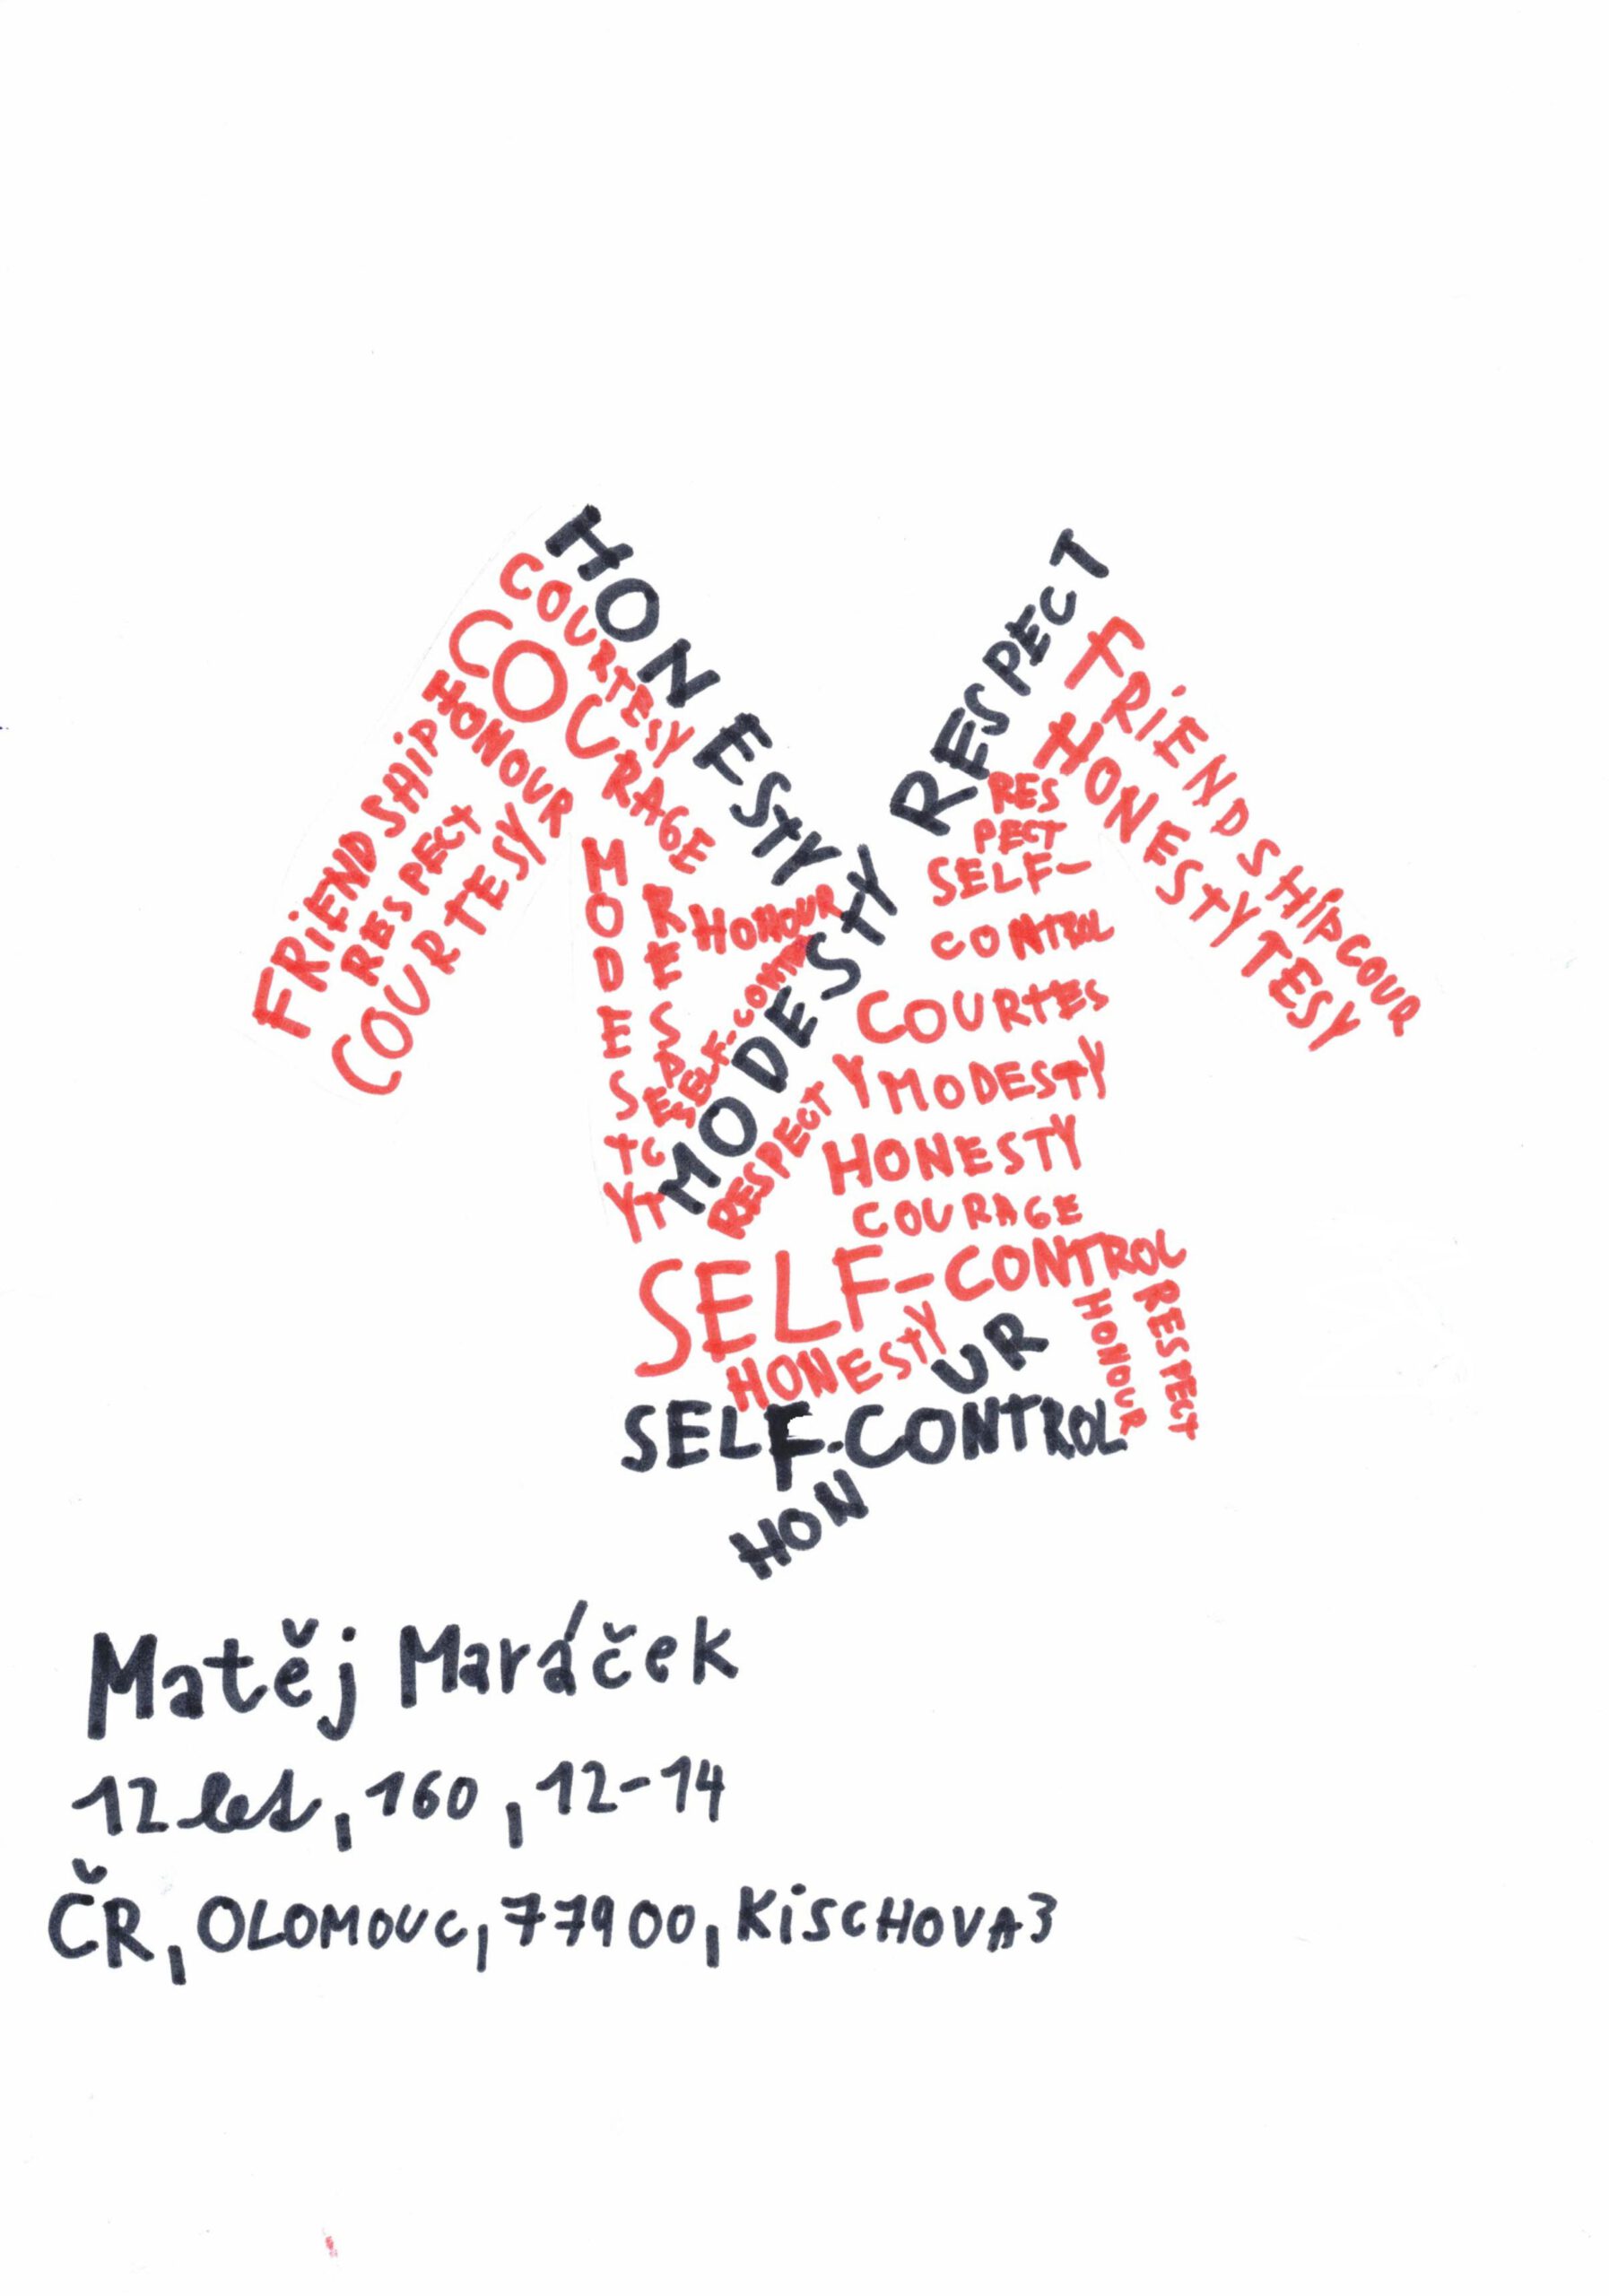 HONESTY
COURTESY
COURAGE
HONOUR
FRIENDSHIP
RESPECT
COURTESY
MODESTY
RESPECT
HONOUR
SELF-CONTROL
MODESTY
RESPECT
RESPECT
FRiENDSHiPCOUR
HONESTYTESY
RES
PECT
SELF-
CONTROL
COURTES
YMODESTY
HONESTY
COURAGE
SELF-CONTROL
HONESTY
HONOUR
RESPECT
UR
SELF-CONTROL
HON
Matěj Maráček
12 let, 160, 12-14
ČR, OLOMOUC, 77900, KiSCHOVA3